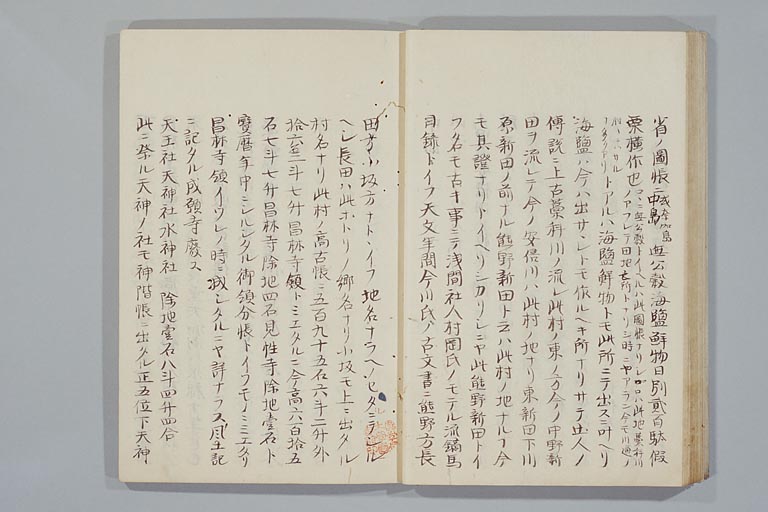 省ノ圖帳ニ中島 或ハ奈加島 無公穀海塩鮮物日別貳百駄假
粟横作也
海塩ハ今ハ出サヽレトモ作ルヘキ所ナリサテ土人ノ
傳説ニ上古藁科川ノ流レ此村ノ東ノ方今ノ中野新
田ヲ流レテ今ノ安倍川ハ此村ノ地ナリ東新田下川
原新田ノ前ナル熊野新田ト云ハ此村ノ地ナルフ今
モ其證ナリトイヘリシカリシニヤ此熊野新田トイ
フ名モ古キ事ニテ浅間社人村岡氏ノモテル流鏑馬
目録ドイフ天文年間今川氏ノ古文書ニ熊野方長
田方小坂方ナトイフ地名ナラヘノセタ
ヘシ長田ハ此ホトリノ郷名ナリ小坂モ上ニ出タル
村名ナリ此村ノ高古帳ニ五百九十五石六斗二升外
拾六石三斗七升昌林寺領トミエタルニ今高六百拾五
石七斗七升昌林寺除地四石見性寺除地壹石ト
寛暦年中ニシルシタル御領分帳トイフモノニミエタリ
昌林寺領イツレノ時ニ減シタルニヤ詳ナラス風土記
ニ記タル成願寺廢ス
天王社天神社水神社 除地壹石八斗四升四合
此ニ祭ル天神ノ社モ神階帳ニ出タル正五位下天神